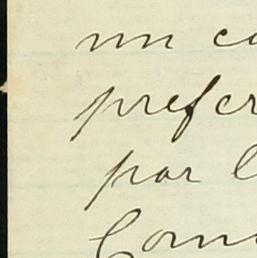 un co
prefer
por l
Com